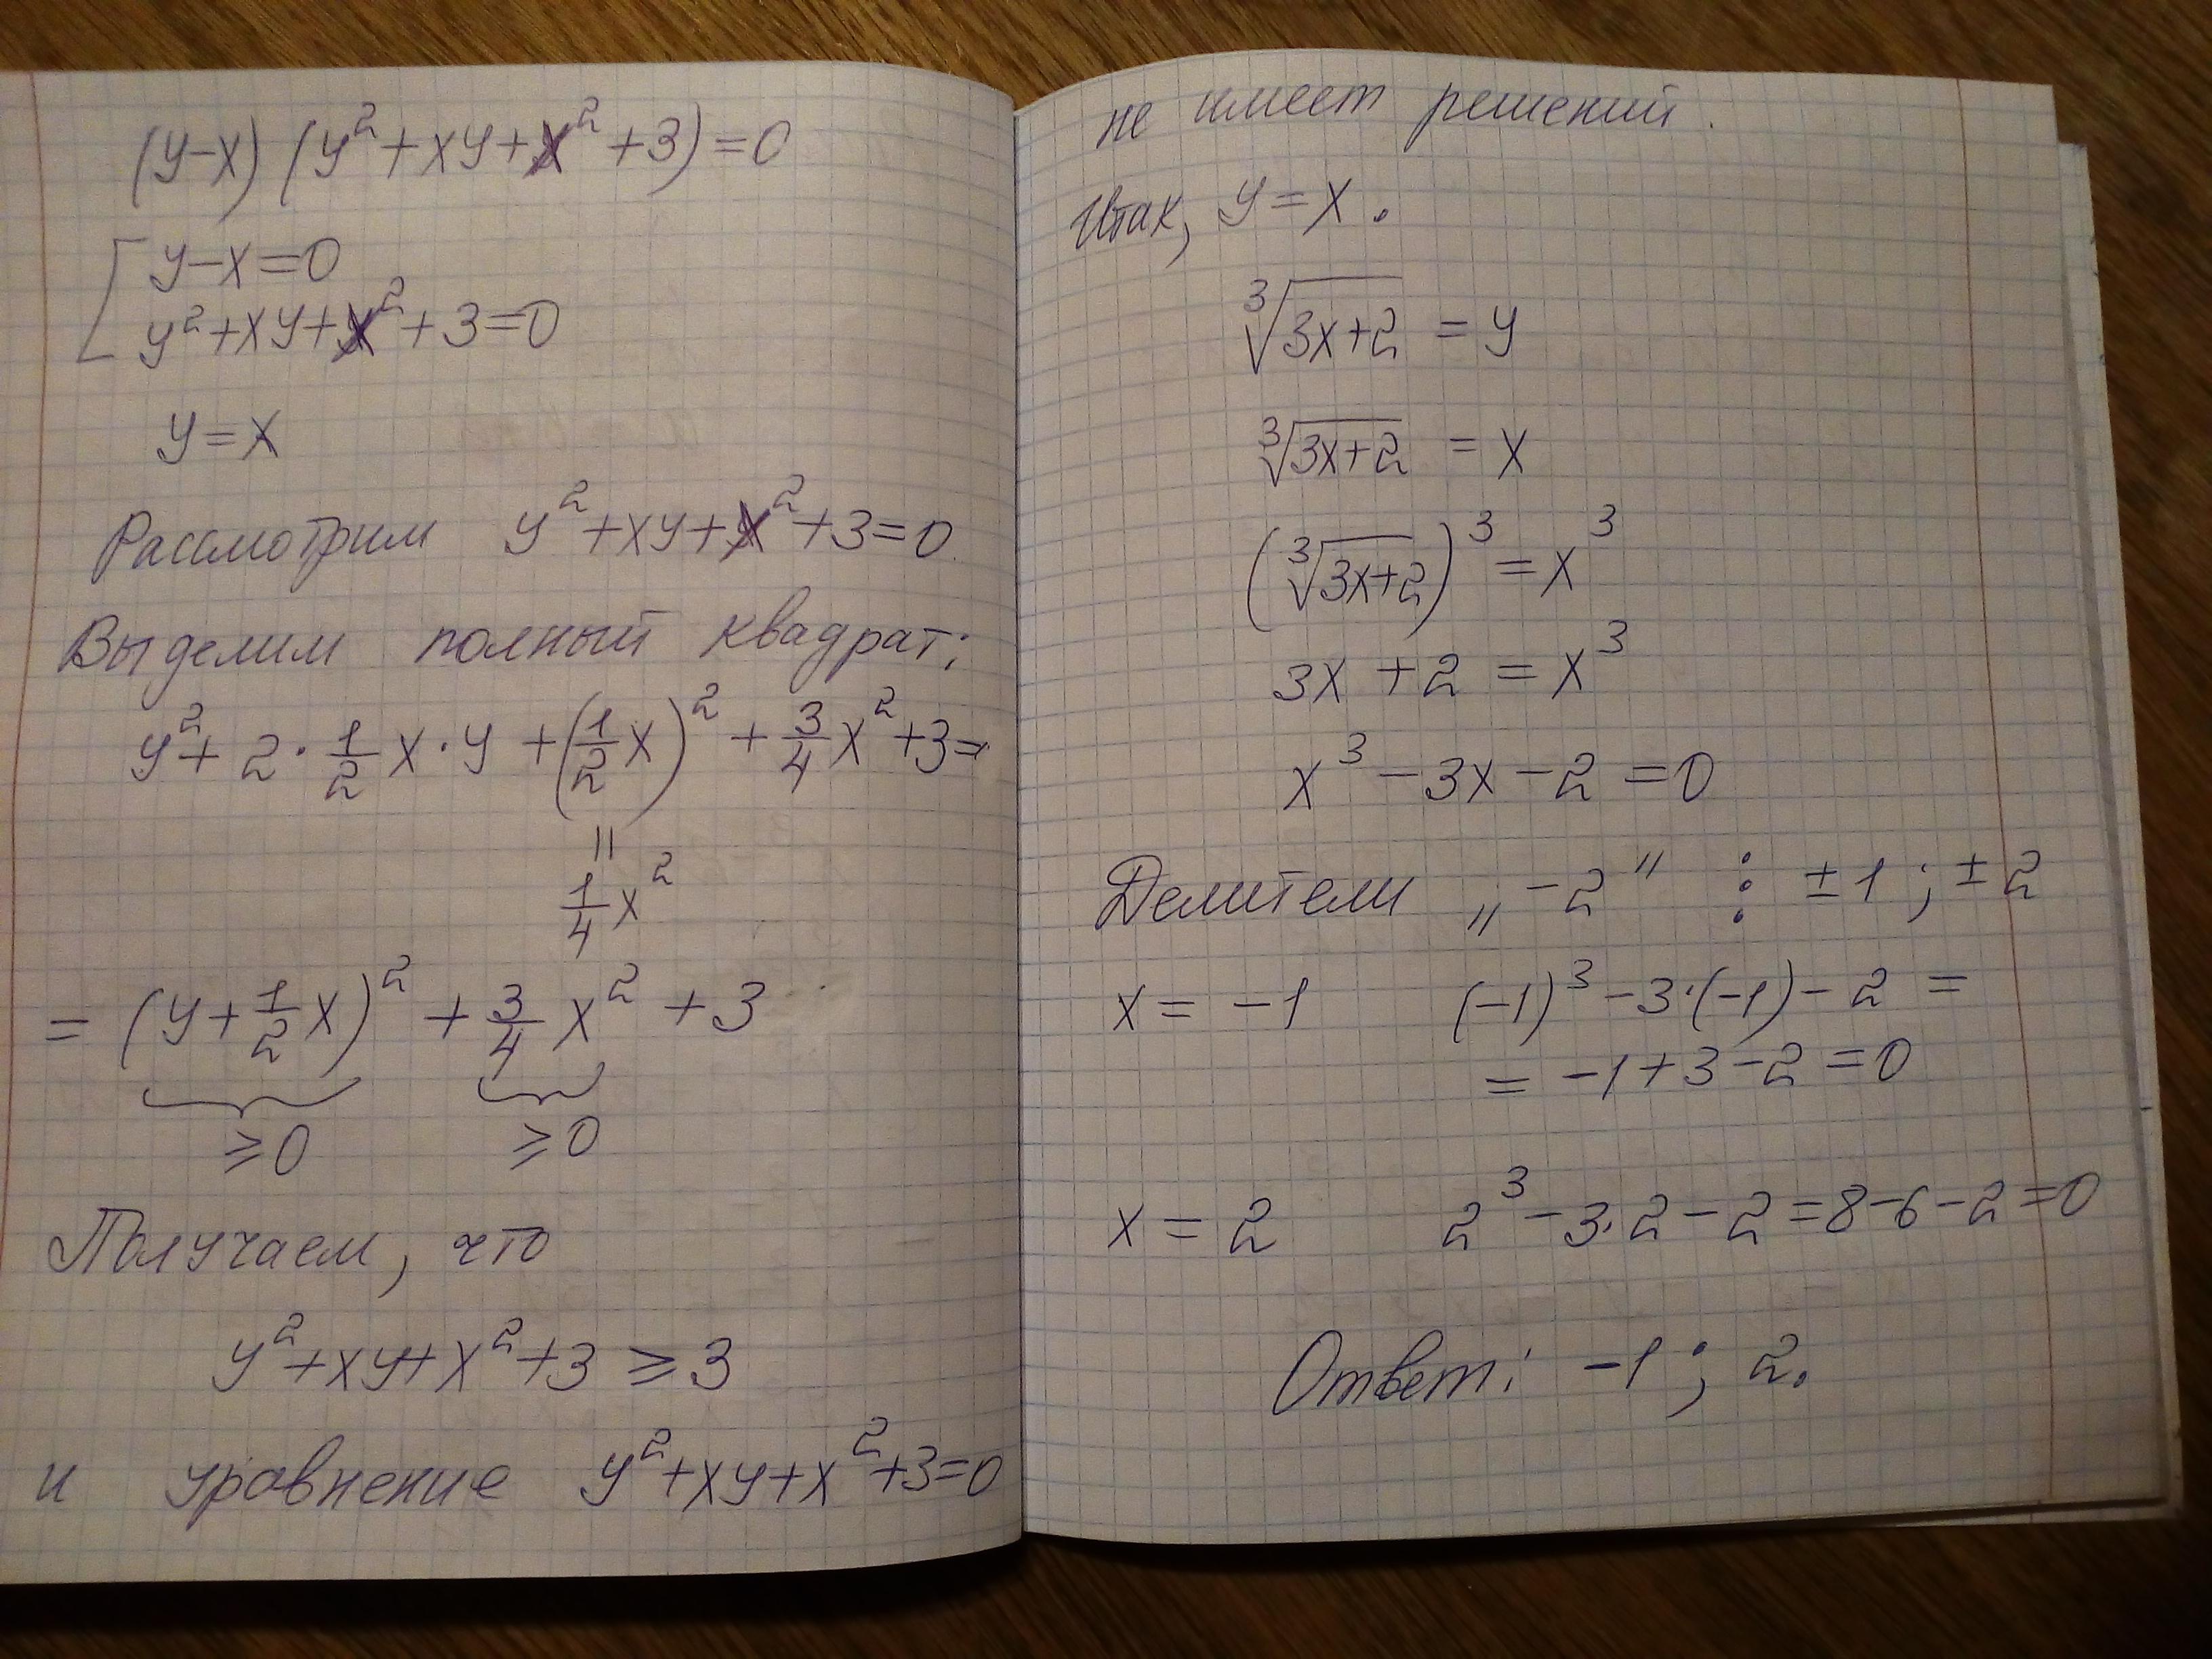 (y-x)(y²+xy+x²+3)=0
[ y-x=0
y²+xy+x²+3=0
y=x
Рассмотрим y²+xy+x²+3=0
Выделим полный квадрат:
y²+2·1/2x·y+(1/2x)²+3/4x²+3=
=
1/4x²
=(y+1/2x)²+3/4x²+3
≥0 ≥0
Получаем, что
y²+xy+x²+3≥3
и уравнение y²+xy+x²+3=0
не имеет решений.
Итак, y=x.
∛(3x+2)=y
∛(3x+2)=x
(∛(3x+2))³=x³
3x+2=x³
x³-3x-2=0
Делители „-2" : ±1; ±2
x=-1 (-1)³-3·(-1)-2=
=-1+3-2=0
x=2 2³-3·2-2=8-6-2=0
Ответ: -1; 2.